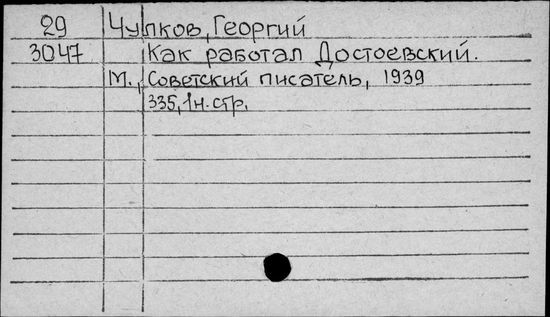 29 Чулков, Георгий
3047 Как работал Достоевский.
М., Советский писатель, 1939
335, 1н. стр.